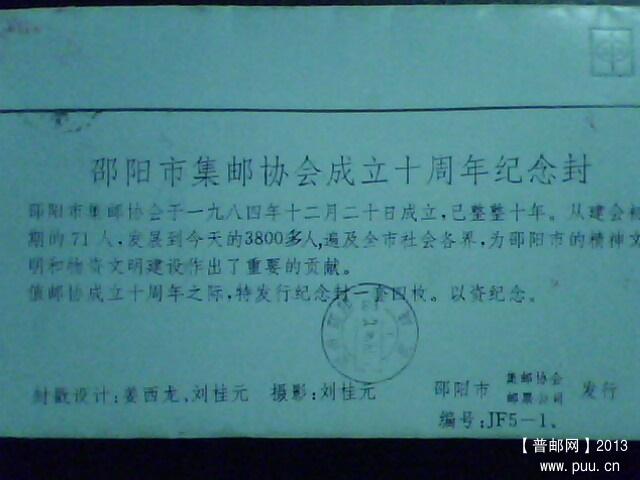 邵阳市集邮协会成立十周年纪念封
邵阳市集邮协会于一九八四年十二月二十日成立,已整整十年。从建会初
期的71人,发展到今天的3800多人,遍及全市社会各界,为邵阳市的精神文
明和物资文明建设作出了重要的贡献。
值邮协成立十周年之际,特发行纪念封一套四枚。以资纪念。
封戳设计:姜西龙、刘桂元 摄影:刘桂元
邵阳市 集邮协会 邮票公司 发行
编号:JF5-1、
【普邮网】2013
www.puu.cn